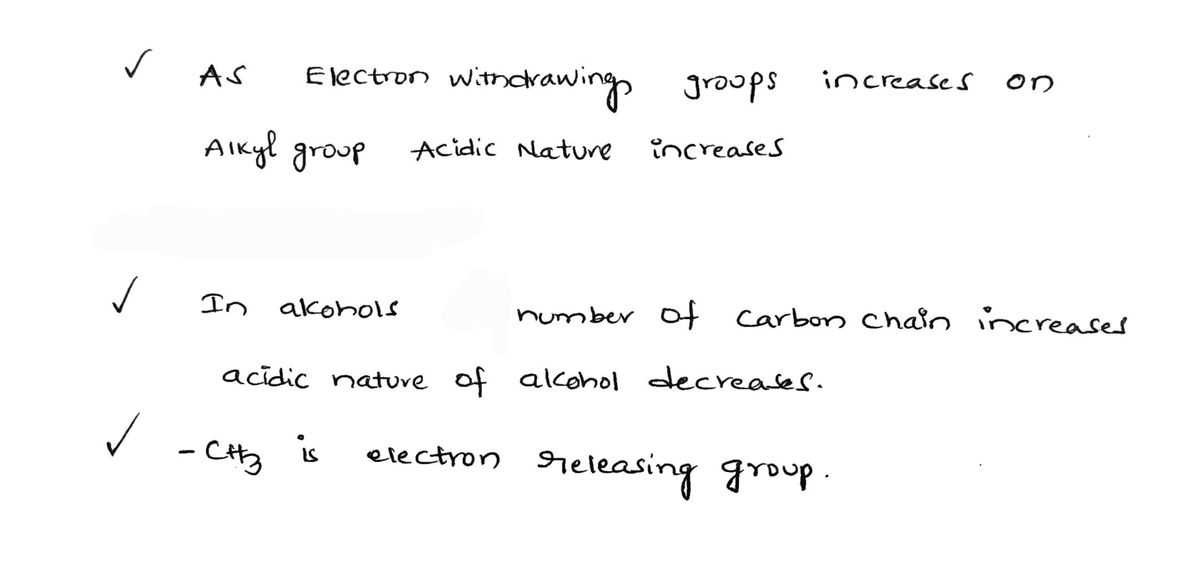 ✓ As Electron withdrawing groups increases on
Alkyl group Acidic Nature increases
✓ In alcohols number of carbon chain increases
acidic nature of alcohol decreases.
✓ -CH3 is electron releasing group.